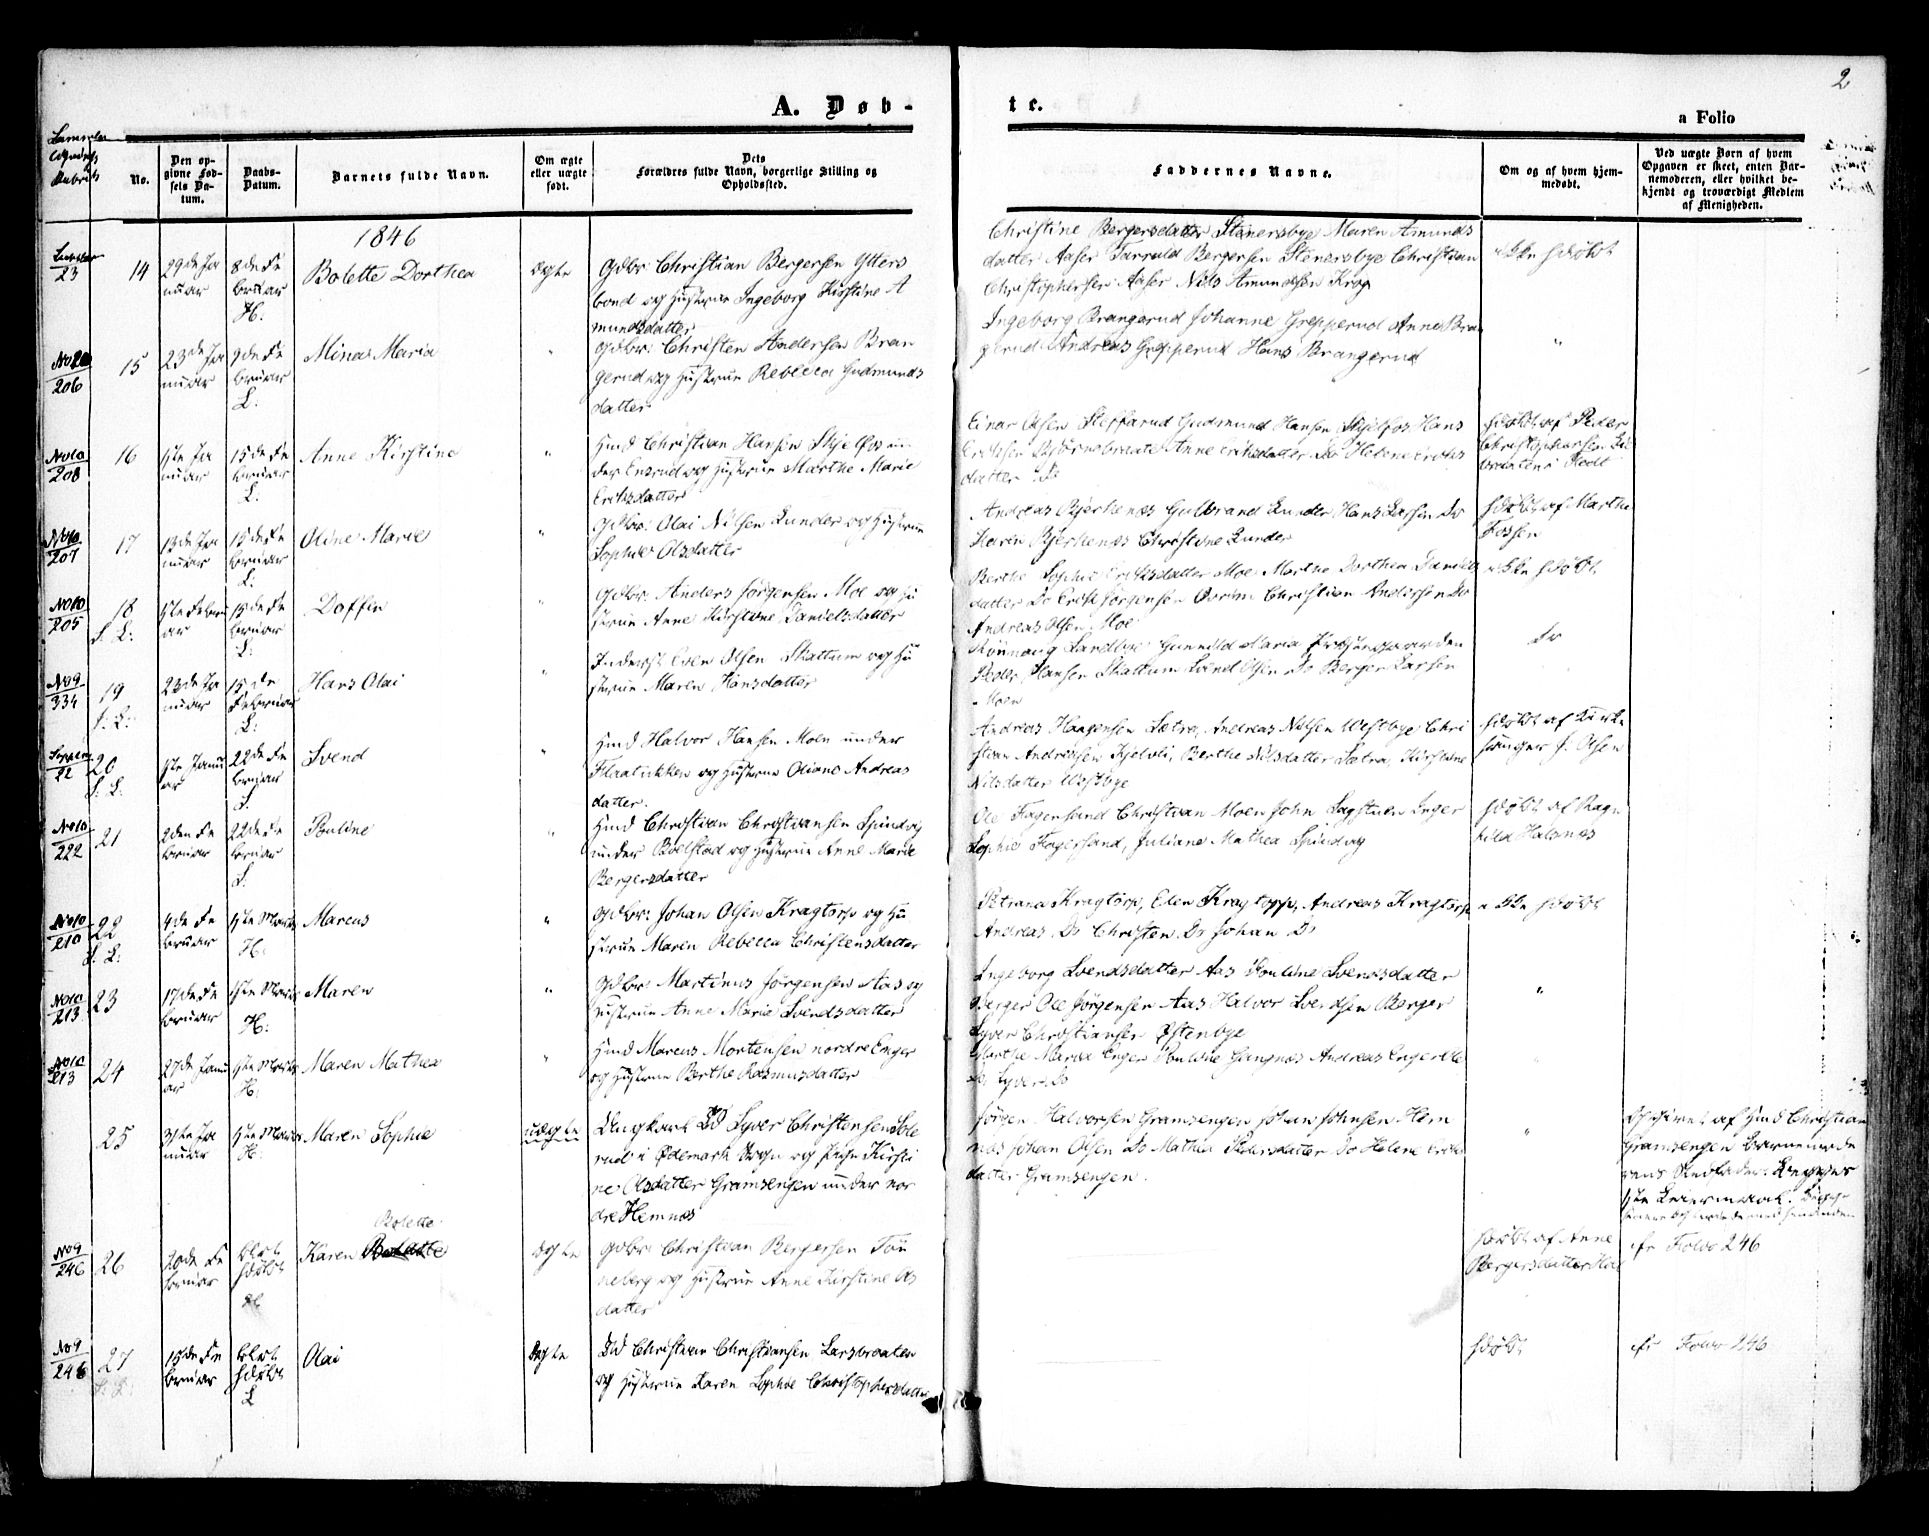 2
A. Døb-
te.
a Folio
No.
Den op-
givne Fød-
sels Da-
tum.
Daabs-
Datum.
Barnets fulde Navn.
Om ægte
eller uægte
født.
Dets
Forældres fulde Navn, borgerlige Stilling og
Opholdssted.
Faddernes Navne.
Om og af hvem hjem-
medøbt.
Ved uægte Børn af hvem
Opgaven er skeet, enten Bar-
nemoderen, eller hvilket be-
kjendt og troværdigt Medlem
af Menigheden.
1846
23
14
29de Ja
nuar
8de Fe
bruar
H:
Bolette Dorthea
Ægte
Gdbr: Christian Bergersen Ytters
bond og Hustrue Ingeborg Kirstine A
mundsdatter
Christine Bergersdatter Stenersbye Maren Amunds
datter Aaser Tarrald Bergersen Stenersbye Christian
Christophersen Aaser Nils Amundsen Krog
ikke hdøbt
206
15
23de Ja
nuar
8de Fe
bruar
L:
Mina Maria
"
Gdbr: Christen Andersen Bran
gerud og Hustrue Rebecca Gudmunds
datter
Ingeborg Brangerud Johanne Grepperud Anne Bran
gerud Andreas Grepperud Hans Brangerud
"
No 10
208
16
1ste Ja
nuar
15de Fe
bruar
L:
Anne Kirstine
"
Huusmd Christian Hansen Skjelfos un
der Ensrud og Hustrue Marthe Marie
Eriksdatter
Einar Olsen Steffarud Gudmund Hansen Skjelfos Hans
Eriksen Anne Eriksdatter Do Helene Eriks
datter Do
hdøbt af Peder
Christophersen
No 10
207
17
13de Ja
nuar
15de Fe
bruar
L:
Oline Marie
"
Gdbr: Olai Nilsen Lunder og Hustrue
Sophie Olsdatter
Andreas Bjerkenæs Gulbrand Lunder, Hans Larsen Do
Karen Bjerkenæs Christine Lunder
hdøbt af Marthe
Fossen
No 10
205
18
1ste Febru
ar
15de Fe
bruar
L:
Daffin
"
Gdbr: Anders Jørgensen Moe og Hu
strue Anne Kirstine Danielsdatter
Berthe Sophie Eriksdatter Moe Marthe Dorthea Daniels
datter Do Erik Jørgensen Christian Andersen Do
Andreas Olsen Moe
ikke hdøbt
No 9
334
19
23de Ja
nuar
15de
Februar
L:
Hans Olai
"
Inderst Even Olsen Skattum og Hu
strue Maren Hansdatter
Rønnaug Sandbye Gunnild Maria
Peder Hansen Skattum Svend Olsen Do Berger Larsen
Moen
Do
22
20
1ste Janu
ar
22de Fe
bruar
S.
Svend
"
Huusmd Halvor Hansen Moen under
og Hustrue Oliane Andreas
datter.
Andreas Haagensen Sætra, Andreas Nilsen Westbye Chri
stian Andreasen Kjelvli, Berthe Nilsdatter Sætra, Kirstine
Nilsdatter Westbye
hdøbt af Kirke
sanger J. Olsen
No 10
222
21
2den Fe
bruar
22de Fe
bruar
S.
Pauline
"
Huusmd Christian Christiansen Spindvig
under Bollstad og Hustrue Anne Marie
Bergersdatter
Ole Fagersand Christian Moen John Sagstuen Inger
Sophie Fagersand, Juliane Mathea Spindvig
hdøbt af Ragn
hild Halsnæs
No 10
210
22
4de Fe
bruar
1ste Marts
H:
Marcus
"
Gdbr: Johan Olsen Kragtorp og Hu
strue Maren Rebecca Christensdatter
Petrana Kragtorp, Elen Kragtorp, Andreas Kragtorp
Andreas Do Christen Do Johan Do
ikke hdøbt
No 10
213
23
17de Fe
bruar
1ste Marts
H:
Maren
"
Gdbr: Martinus Jørgensen Aas og
Hustrue Anne Marie Svendsdatter
Ingeborg Svendsdatter Aas Pouline Svendsdatter
Berger Ole Jørgensen Aas Halvor Svendsen Berger
Syver Christiansen Østenbye
"
No 10
213
24
27de Janu
ar
1ste Marts
H:
Maren Mathea
"
Huusmd Marcus Mortensen nordre Enger
og Hustrue Berthe Rasmusdatter
Marthe Maria Enger Pouline Hangnæs Andreas Enger Ole
Do Syver Do
25
31te Ja
nuar
1ste Marts
H:
Maren Sophie
uægte
Ungkarl Syver Christensen Sole
rud i Ødemark Sogn og Pige Kirsti
ne Olsdatter Gramsengen under nor
dre Hemnæs
Jørgen Halvorsen Gramsengen Johan Johnsen Hem
næs Johan Olsen Do Mathea Pedersdatter Do Helene Eriks
datter Gramsengen.
"
Opgivet af Huusmd Christian
Gramsengen Barnemode
rens Stedfader. Begges
1ste Leiermaal.
No 9
246
26
20de Fe
bruar
blot
hdøbt
H
Bolette
Karen
Ægte
Gdbr: Christian Bergersen Tøn
neberg og Hustrue Anne Kirstine Ols
datter
hdøbt af Anne
Bergersdatter
cfr Folio 246
No 9
246
27
15de Fe
bruar
blot
hdøbt
L
Olai
Ægte
Christian Christiansen Larsbraaten
og Hustrue Karen Sophie Christophersdatter
hdøbt
cfr Folio 246